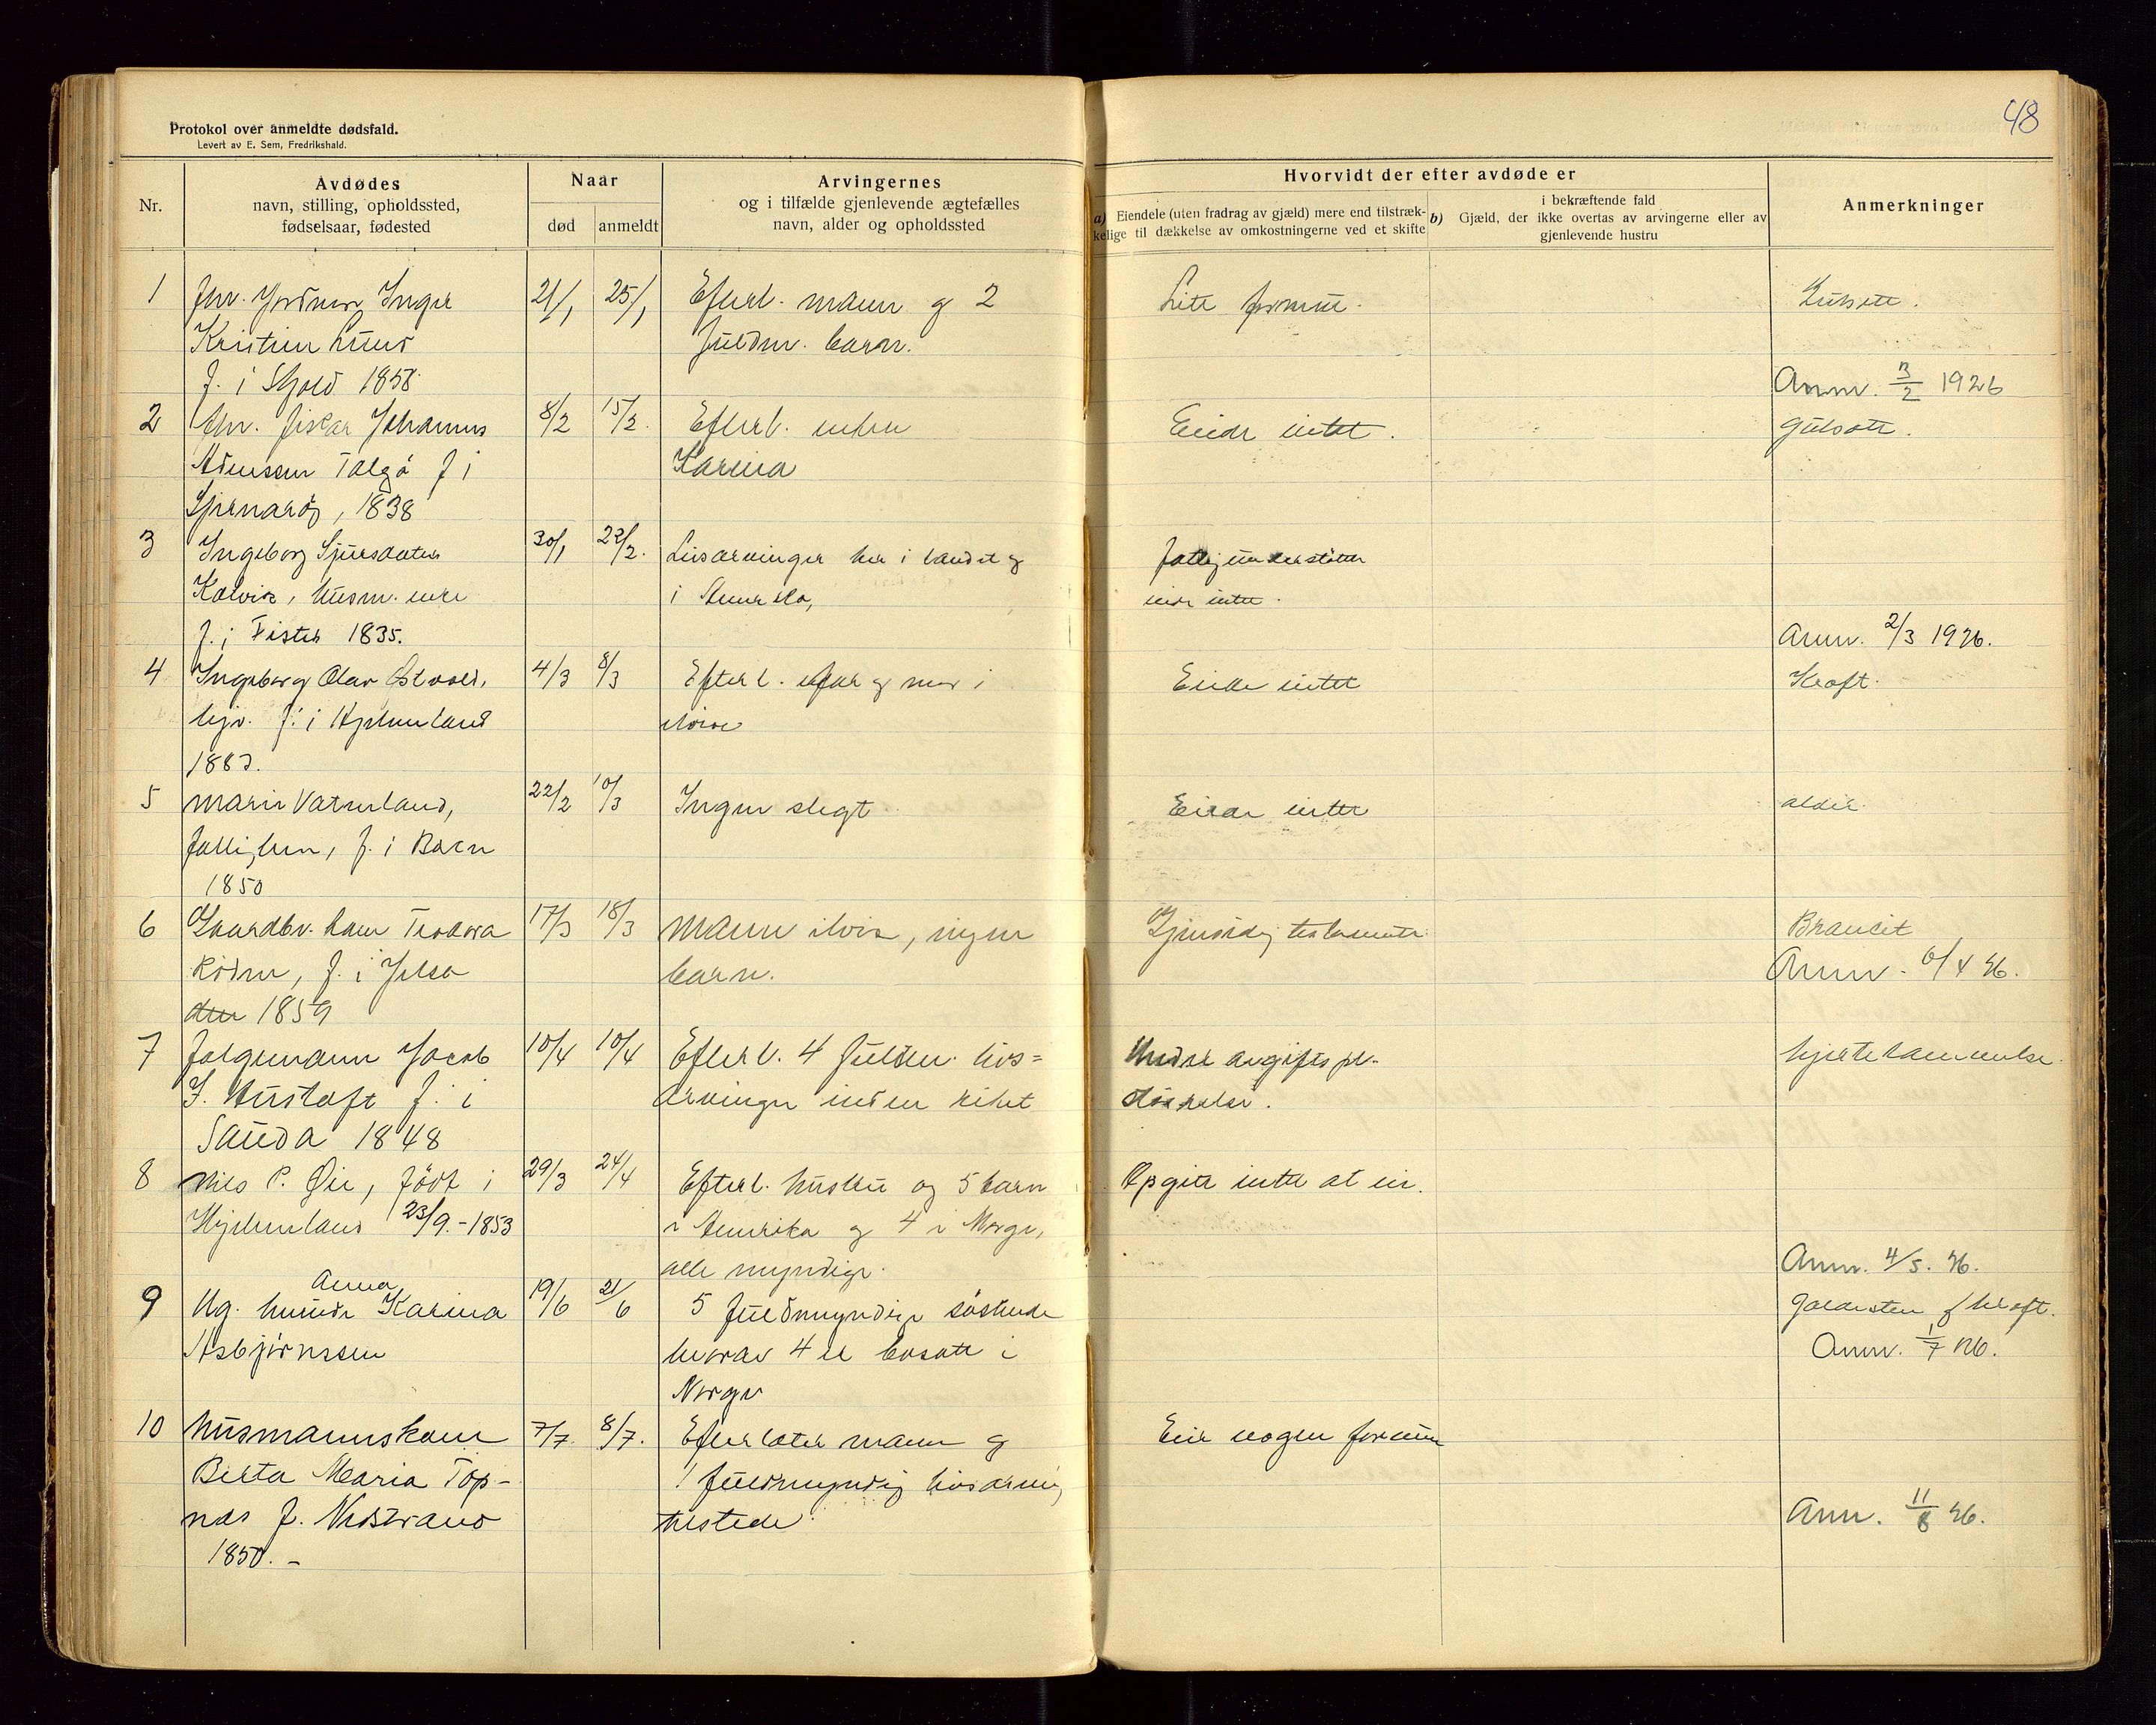 48
Protokol over anmeldte dødsfald.
Levert av E. Sem, Fredrikshald.
Nr.
Avdødes
navn, stilling, opholdssted,
fødselsaar, fødested
Naar
død
anmeldt
Arvingernes
og i tilfælde gjenlevende ægtefælles
navn, alder og opholdssted
Hvorvidt der efter avdøde er
a) Eiendele (uten fradrag av gjæld) mere end tilstræk-
kelige til dækkelse av omkostningerne ved et skifte
i bekræftende fald
b) Gjæld, der ikke overtas av arvingerne eller av
gjenlevende hustru
Anmerkninger
1 Inger 21/1 25/1 Efterl. mann og 2 Litt formue.
Kristine Lund fuldm. barn.
f. i Skjold 1858. Anm. 3/2 1926
2 fisker Johannes 8/2 15/2. Efterl. enken Eiede intet. Gulsott.
Talgø f i Karina
Sjernarøy, 1838
3 Ingeborg Sjursdatter 30/1 22/2. Livsarvinger her i landet og fattigunderstøttet
Kalvik, husm. enke i Amerika, eiede intet.
f. i Fister 1835. Anm. 2/3 1926.
4 Ingeborg Olav Østvold, 4/3 8/3 Efterl. far og mor i Eiede intet Kræft.
f. i Hjelmeland live
1883.
5 Marie Vatneland, 22/2 10/3 Ingen slegt Eiede intet alder.
f. i Bøen
1850
6 Gaardbr. kone Teodora 17/3 18/3 Mann ilive, ingen Gjensidig testamente
f. i Jelsa barn. Anm. 6/4 26.
1859
7 Folgemann Jacob 10/4 10/4 Efterl. 4 fuldm. livs= Under avgiftspl. hjertelammelse.
f. i arvinger inden riket størrelse.
Sauda 1848
8 Nils P. Øie, født i 29/3 24/4 Efterl. hustru og 5 barn Opgitt intet at eie.
Hjelmeland 23/9.-1853 i Amerika og 4 i Norge,
alle myndige. Anm. 4/5. 26.
Anna
9 Ug. kvinde Karina 19/6 21/6 5 fuldmyndige søskende Galdesten kræft.
Asbjørnssen hvorav 4 er bosatt i Anm. 1/7 26.
Norge
10 Husmannskone 7/7. 8/7. Efterlater mann og Eier nogen formue
Berta Maria Top- 1 fuldmyndig livsarving
nes f. Nedstrand tilstede. Anm. 11/8 26.
1850. -